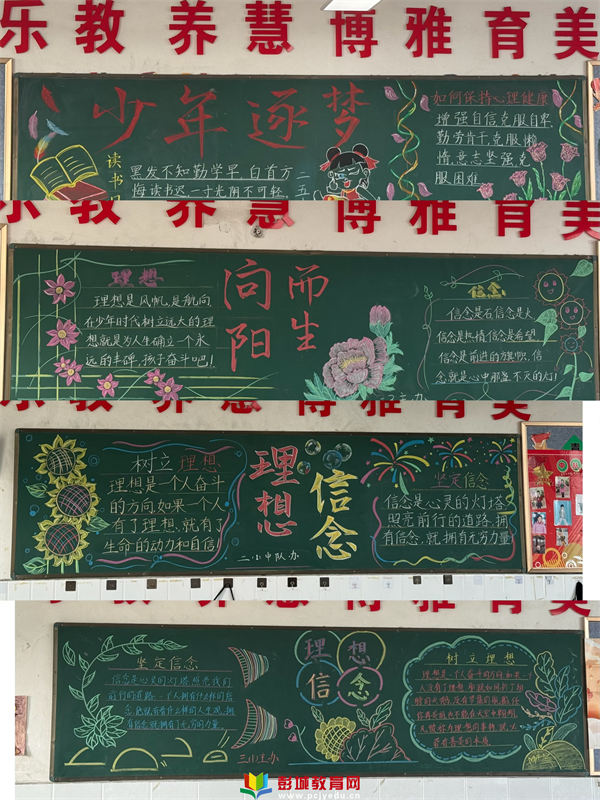 乐教 养慧 博雅育美
少年逐梦
读书
黑发不知勤学早,白首方
悔读书迟,一寸光阴不可轻.
二
五
如何保持心理健康
增强自信克服自卑
勤劳肯干,克服懒
惰,意志坚强克
服困难
乐教 养慧 博雅育美
理想
理想是风帆,是航向
在少年时代树立远大的理
想就是为人生确立一个永
远的丰碑,孩子奋斗吧!
向阳
而生
信念
信念是石信念是火
信念是热情信念是希望
信念是前进的旗帜,信
念就是心中那盏不灭的灯!
树立理想
理想是一个人奋斗
的方向如果一个人
有了理想,就有了
生命的动力和自信!
理想
信念
二小中队办
坚定信念
信念是心灵的灯塔
照亮前行的道路,拥
有信念,就拥有无穷力量
坚定信念
信念是心灵的灯塔,照亮我们
前行的道路,一个人拥有什么样的信
念,他就有着什么样的人生观,拥
有信念,就拥有了无穷的力量.
理想
信念
树立理想
彭城教育网
www.pcjyedu.cn